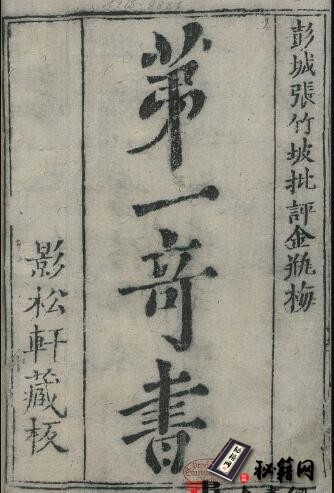 彭城張竹坡批評金瓶梅
第一奇書
影松軒藏板
秘籍网